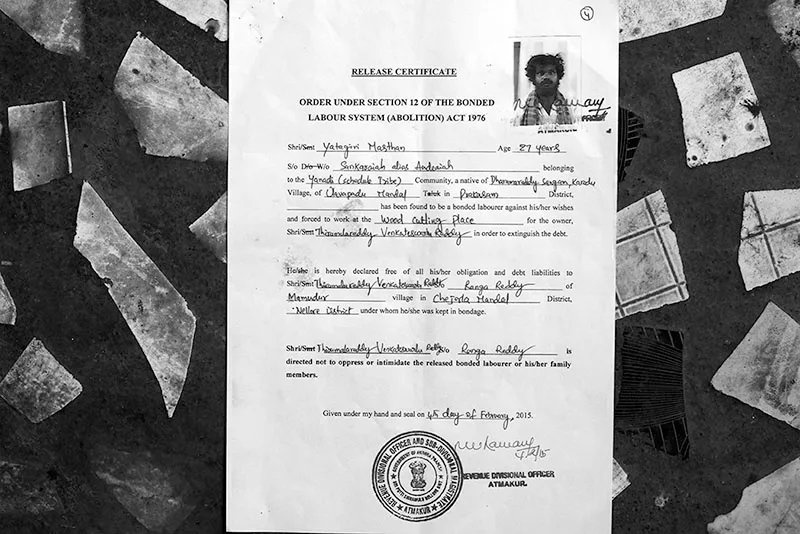 4
RELEASE CERTIFICATE
ORDER UNDER SECTION 12 OF THE BONDED
LABOUR SYSTEM (ABOLITION) ACT 1976
ATMAKUR
Shri/Smt Yatagiri Masthan Age 27 years
S/o D/o W/o Sankaraiah alias Andraiah belonging
to the Yanadi (schedule Tribe) Community, a native of
Village, of Mandal Taluk in Prakasam District,
has been found to be a bonded labourer against his/her wishes
and forced to work at the Wood Cutting Place for the owner,
Shri/Smt Thirumalareddy Venkateswarlu Reddy in order to extinguish the debt.
He/she is hereby declared free of all his/her obligation and debt liabilities to
Shri/Smt Thirumalareddy Venkateswarlu Reddy S/o Ranga Reddy of
Mamudur village in Chejerla Mandal District,
Nellore District under whom he/she was kept in bondage.
Shri/Smt Thirumalareddy Venkateswarlu Reddy S/o Ranga Reddy is
directed not to oppress or intimidate the released bonded labourer or his/her family
members.
Given under my hand and seal on 4th day of February, 2015.
REVENUE DIVISIONAL OFFICER AND SUB-DIVISIONAL MAGISTRATE
GOVERNMENT OF ANDHRA PRADESH
ATMAKUR
4/2/15
REVENUE DIVISIONAL OFFICER
ATMAKUR.